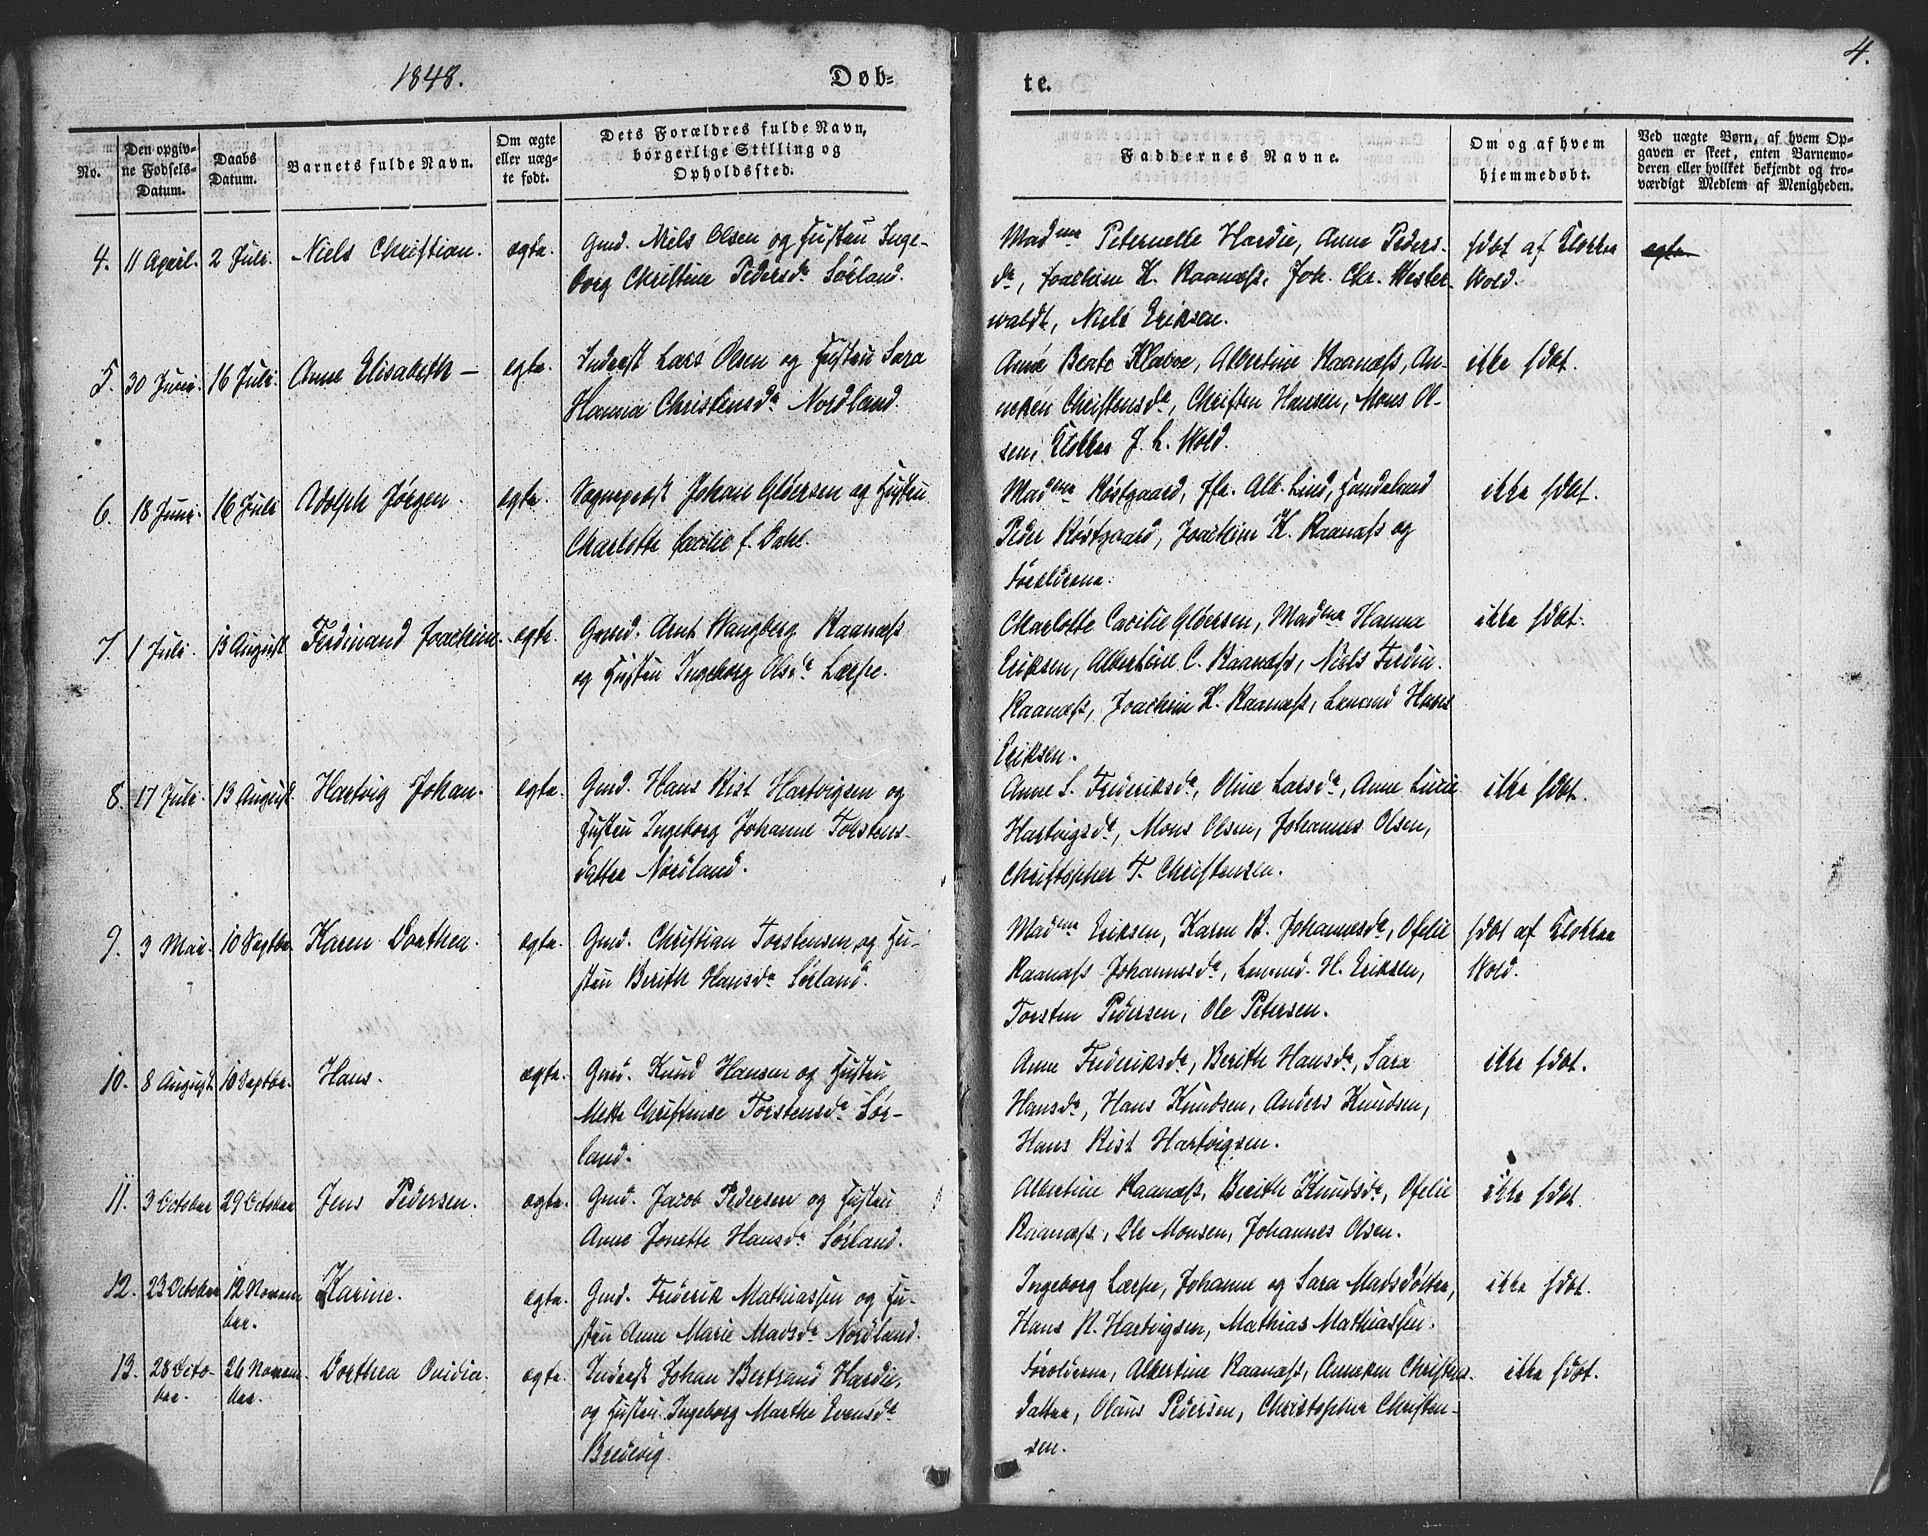 1848.
Døb-
te.
4.
No.
Den opgiv-
ne Fødsels-
Datum.
Daabs
Datum.
Barnets fulde Navn.
Om ægte
eller uæg-
te født.
Dets Forældres fulde Navn,
borgerlige Stilling og
Opholdssted.
Faddernes Navne.
Om og af hvem
hjemmedøbt.
Ved uægte Børn, af hvem Op-
gaven er skeet, enten Barnemo-
deren eller hvilket bekjendt og tro-
værdigt Medlem af Menigheden.
4. 11 April. 2 Juli. Niels Christian. ægte. Gmd. Niels Olsen og Hustru Inge-
borg Christine Pedersdr Sørland.
Madme Peternelle Hardie, Anne Peders-
dr, Joachim K. Raanæss, Joh. Chr. Wester-
waldt, Niels Eriksen.
døbt af Klokker
Wold.
ægte
5. 30 Juni. 16 Juli. Anne Elisabeth — ægte. Inderst Lars Olsen og Hustru Sara
Hanna Christensdr Nordland.
Anne Beate Klæboe, Albertine Raanæss, An-
neken Christensdr, Christen Hansen, Mons Ol-
sen, Klokker J. L. Wold.
ikke døbt.
6. 18 Juni. 16 Juli Adolph Jörgen. ægte. Sognepræst Johan Gløersen og Hustru
Charlotte Cecilie f. Dahl.
Madme Røstgaard, Alb. Lind,
Peder Røstgaard, Joachim K. Raanæss og
Forældrene.
ikke døbt.
7. 1 Juli. 13 August Ferdinand Joachim. ægte. Gmd. Arnt Wangberg Raanæss
og Hustru Ingeborg Olsdr Lærpe.
Charlotte Cæcilie Gløersen, Madme Hanna
Eriksen, Albertine C. Raanæss, Niels Ferdin.
Raanæss, Joachim K. Raanæss, Lensmd Hans
Eriksen.
ikke døbt.
8. 17 Juli. 13 August. Hartvig Johan. ægte. Gmd. Hans Rist Hartvigsen og
Hustru Ingeborg Johanne Torstens-
datter Nordland.
Anne S. Frederiksdr, Oline Larsdr, Anne Lucie
Hartvigsdr, Mons Olsen, Johannes Olsen,
Christopher T. Christensen.
ikke døbt.
9. 3 Mai. 10 Septbr. Karen Dorthea. ægte. Gmd. Christian Torstensen og Hu-
stru Berith Hansdr Sørland.
Madme Eriksen, Karen B. Johannesdr, Ofelie
Raanæss Johannesdr, Lensmd. H. Eriksen,
Torsten Pedersen, Ole Petersen.
døbt af Klokker
Wold.
10. 8 August. 10 Septbr. Hans. ægte. Gmd. Knud Hansen og Hustru
Mette Christense Torstensdr Sør-
land.
Anne Frederiksdr, Berith Hansdr, Sara
Hansdr, Hans Knudsen, Anders Knudsen,
Hans Rist Hartvigsen.
ikke døbt.
11. 3 October 29 October Jens Pedersen. ægte. Gmd. Jacob Pedersen og Hustru
Anne Jonette Hansdr Sørland.
Albertine Raanæss, Berith Knudsdr, Ofelie
Raanæss, Ole Monsen, Johannes Olsen.
ikke døbt.
12. 23 October 12 Novem-
ber. Karine. ægte. Gmd. Frederik Mathiassen og Hu-
stru Anne Marie Madsdr Nordland.
Ingeborg Lærpe, Johanne og Sara Madsdøttre,
Hans R. Hartvigsen, Mathias Mathiassen.
ikke døbt.
13. 28 Octo-
ber 26 Novem-
ber. Dorthea Ovidia. ægte. Inderst Johan Bertrand Hardie,
og Hustru Ingeborg Marthe Evensdr
Bredevig.
Forældrene, Albertine Raanæss, Anneken Christens-
datter, Olaus Pedersen, Christopher Christen-
sen.
ikke døbt.